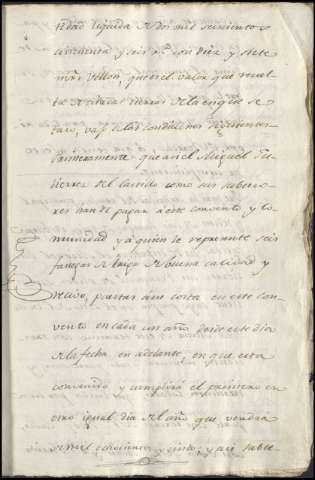 tidad liquida de dos mil seiscientos
cincuenta y seis rs. con diez y siete
mrs. vellon, que es el valor que resul
ta de citadas tierras de la en que se
bajo de las condiciones siguientes
Primeramente que en el Miguel Gu
tierrez del partido como sus subceso
res han de pagar á este convento y Co
munidad y á quien le represente seis
fanegas de trigo de buena calidad y
recivo, puestas á su costa en este con
vento en cada un año desde este dia
de la fecha en adelante, en que esta
convenido y cumplirá el primero en
otro igual dia del año que vendrá
de mil ochocientos y cinco; y asi subce